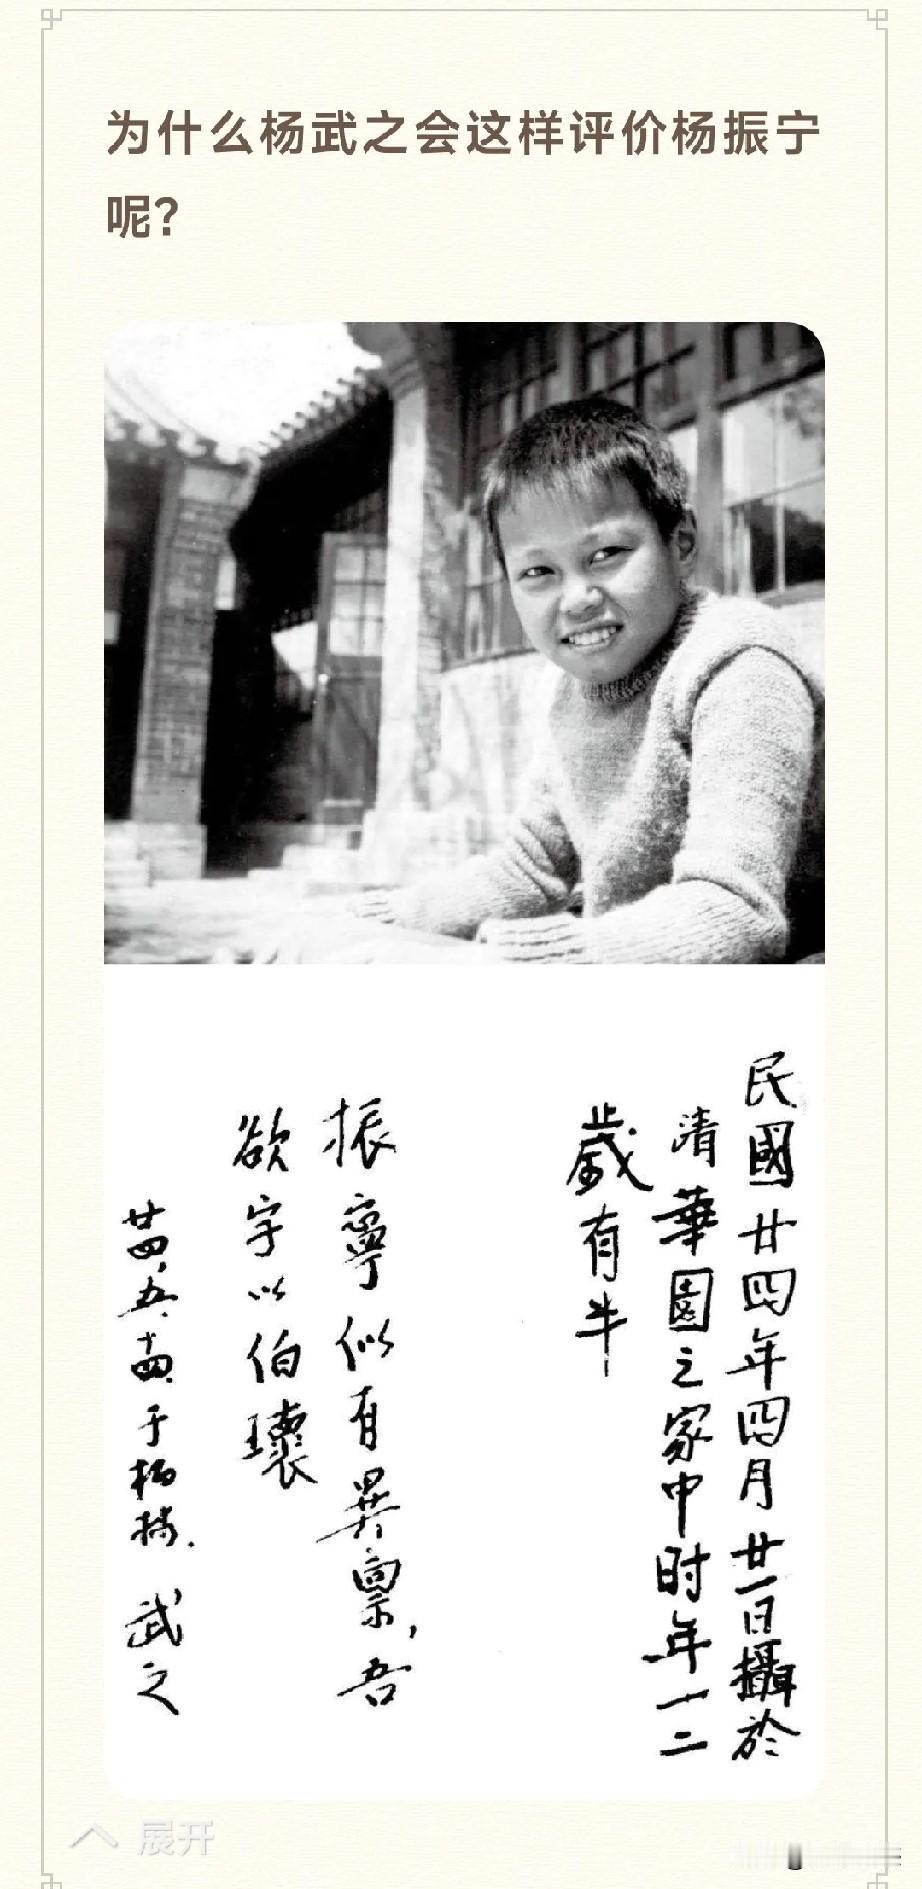 为什么杨武之会这样评价杨振宁
呢？
民國廿四年四月廿一日攝於
清華園之家中时年十二
歲有半
振寧似有異禀，吾
欲字以伯瓌
廿四，五，十四，于柏林．武之
展开